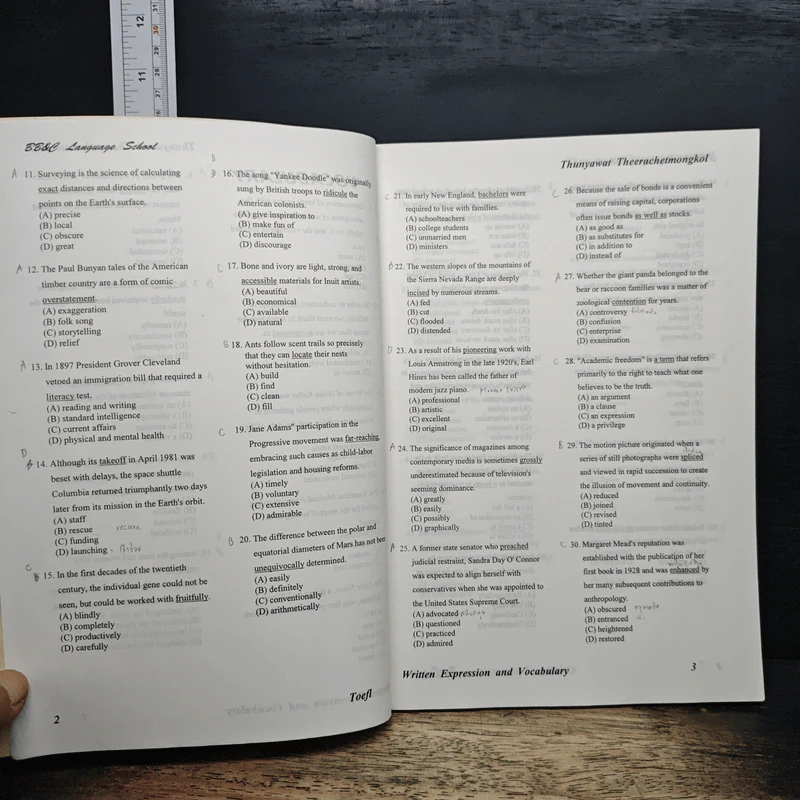 12
11
31
30
29
28
27
BB&C Language School
A 11. Surveying is the science of calculating
exact distances and directions between
points on the Earth's surface.
(A) precise
(B) local
(C) obscure
(D) great
A 12. The Paul Bunyan tales of the American
timber country are a form of comic
overstatement.
(A) exaggeration
(B) folk song
(C) storytelling
(D) relief
A 13. In 1897 President Grover Cleveland
vetoed an immigration bill that required a
literacy test.
(A) reading and writing
(B) standard intelligence
(C) current affairs
(D) physical and mental health
D
14. Although its takeoff in April 1981 was
beset with delays, the space shuttle
Columbia returned triumphantly two days
later from its mission in the Earth's orbit.
(A) staff
(B) rescue
(C) funding
(D) launching
C
B 15. In the first decades of the twentieth
century, the individual gene could not be
seen, but could be worked with fruitfully.
(A) blindly
(B) completely
(C) productively
(D) carefully
2
B
16. The song "Yankee Doodle" was originally
sung by British troops to ridicule the
American colonists.
(A) give inspiration to
(B) make fun of
(C) entertain
(D) discourage
C 17. Bone and ivory are light, strong, and
accessible materials for Inuit artists.
(A) beautiful
(B) economical
(C) available
(D) natural
B 18. Ants follow scent trails so precisely
that they can locate their nests
without hesitation.
(A) build
(B) find
(C) clean
(D) fill
C 19. Jane Adams" participation in the
Progressive movement was far-reaching,
embracing such causes as child-labor
legislation and housing reforms.
(A) timely
(B) voluntary
(C) extensive
(D) admirable
B 20. The difference between the polar and
equatorial diameters of Mars has not been
unequivocally determined.
(A) easily
(B) definitely
(C) conventionally
(D) arithmetically
Toefl
Thunyawat Theerachetmongkol
C 21. In early New England, bachelors were
required to live with families.
(A) schoolteachers
(B) college students
(C) unmarried men
(D) ministers
B 22. The western slopes of the mountains of
the Sierra Nevada Range are deeply
incised by numerous streams.
(A) fed
(B) cut
(C) flooded
(D) distended
D 23. As a result of his pioneering work with
Louis Armstrong in the late 1920's, Earl
Hines has been called the father of
modern jazz piano.
(A) professional
(B) artistic
(C) excellent
(D) original
A 24. The significance of magazines among
contemporary media is sometimes grossly
underestimated because of television's
seeming dominance.
(A) greatly
(B) easily
(C) possibly
(D) graphically
A 25. A former state senator who preached
judicial restraint, Sandra Day O' Connor
was expected to align herself with
conservatives when she was appointed to
the United States Supreme Court.
(A) advocated
(B) questioned
(C) practiced
(D) admired
C 26. Because the sale of bonds is a convenient
means of raising capital, corporations
often issue bonds as well as stocks.
(A) as good as
(B) as substitutes for
(C) in addition to
(D) instead of
A 27. Whether the giant panda belonged to the
bear or raccoon families was a matter of
zoological contention for years.
(A) controversy
(B) confusion
(C) enterprise
(D) examination
C 28. "Academic freedom" is a term that refers
primarily to the right to teach what one
believes to be the truth.
(A) an argument
(B) a clause
(C) an expression
(D) a privilege
B 29. The motion picture originated when a
series of still photographs were spliced
and viewed in rapid succession to create
the illusion of movement and continuity.
(A) reduced
(B) joined
(C) revised
(D) tinted
C 30. Margaret Mead's reputation was
established with the publication of her
first book in 1928 and was enhanced by
her many subsequent contributions to
anthropology.
(A) obscured
(B) entranced
(C) heightened
(D) restored
Written Expression and Vocabulary
3